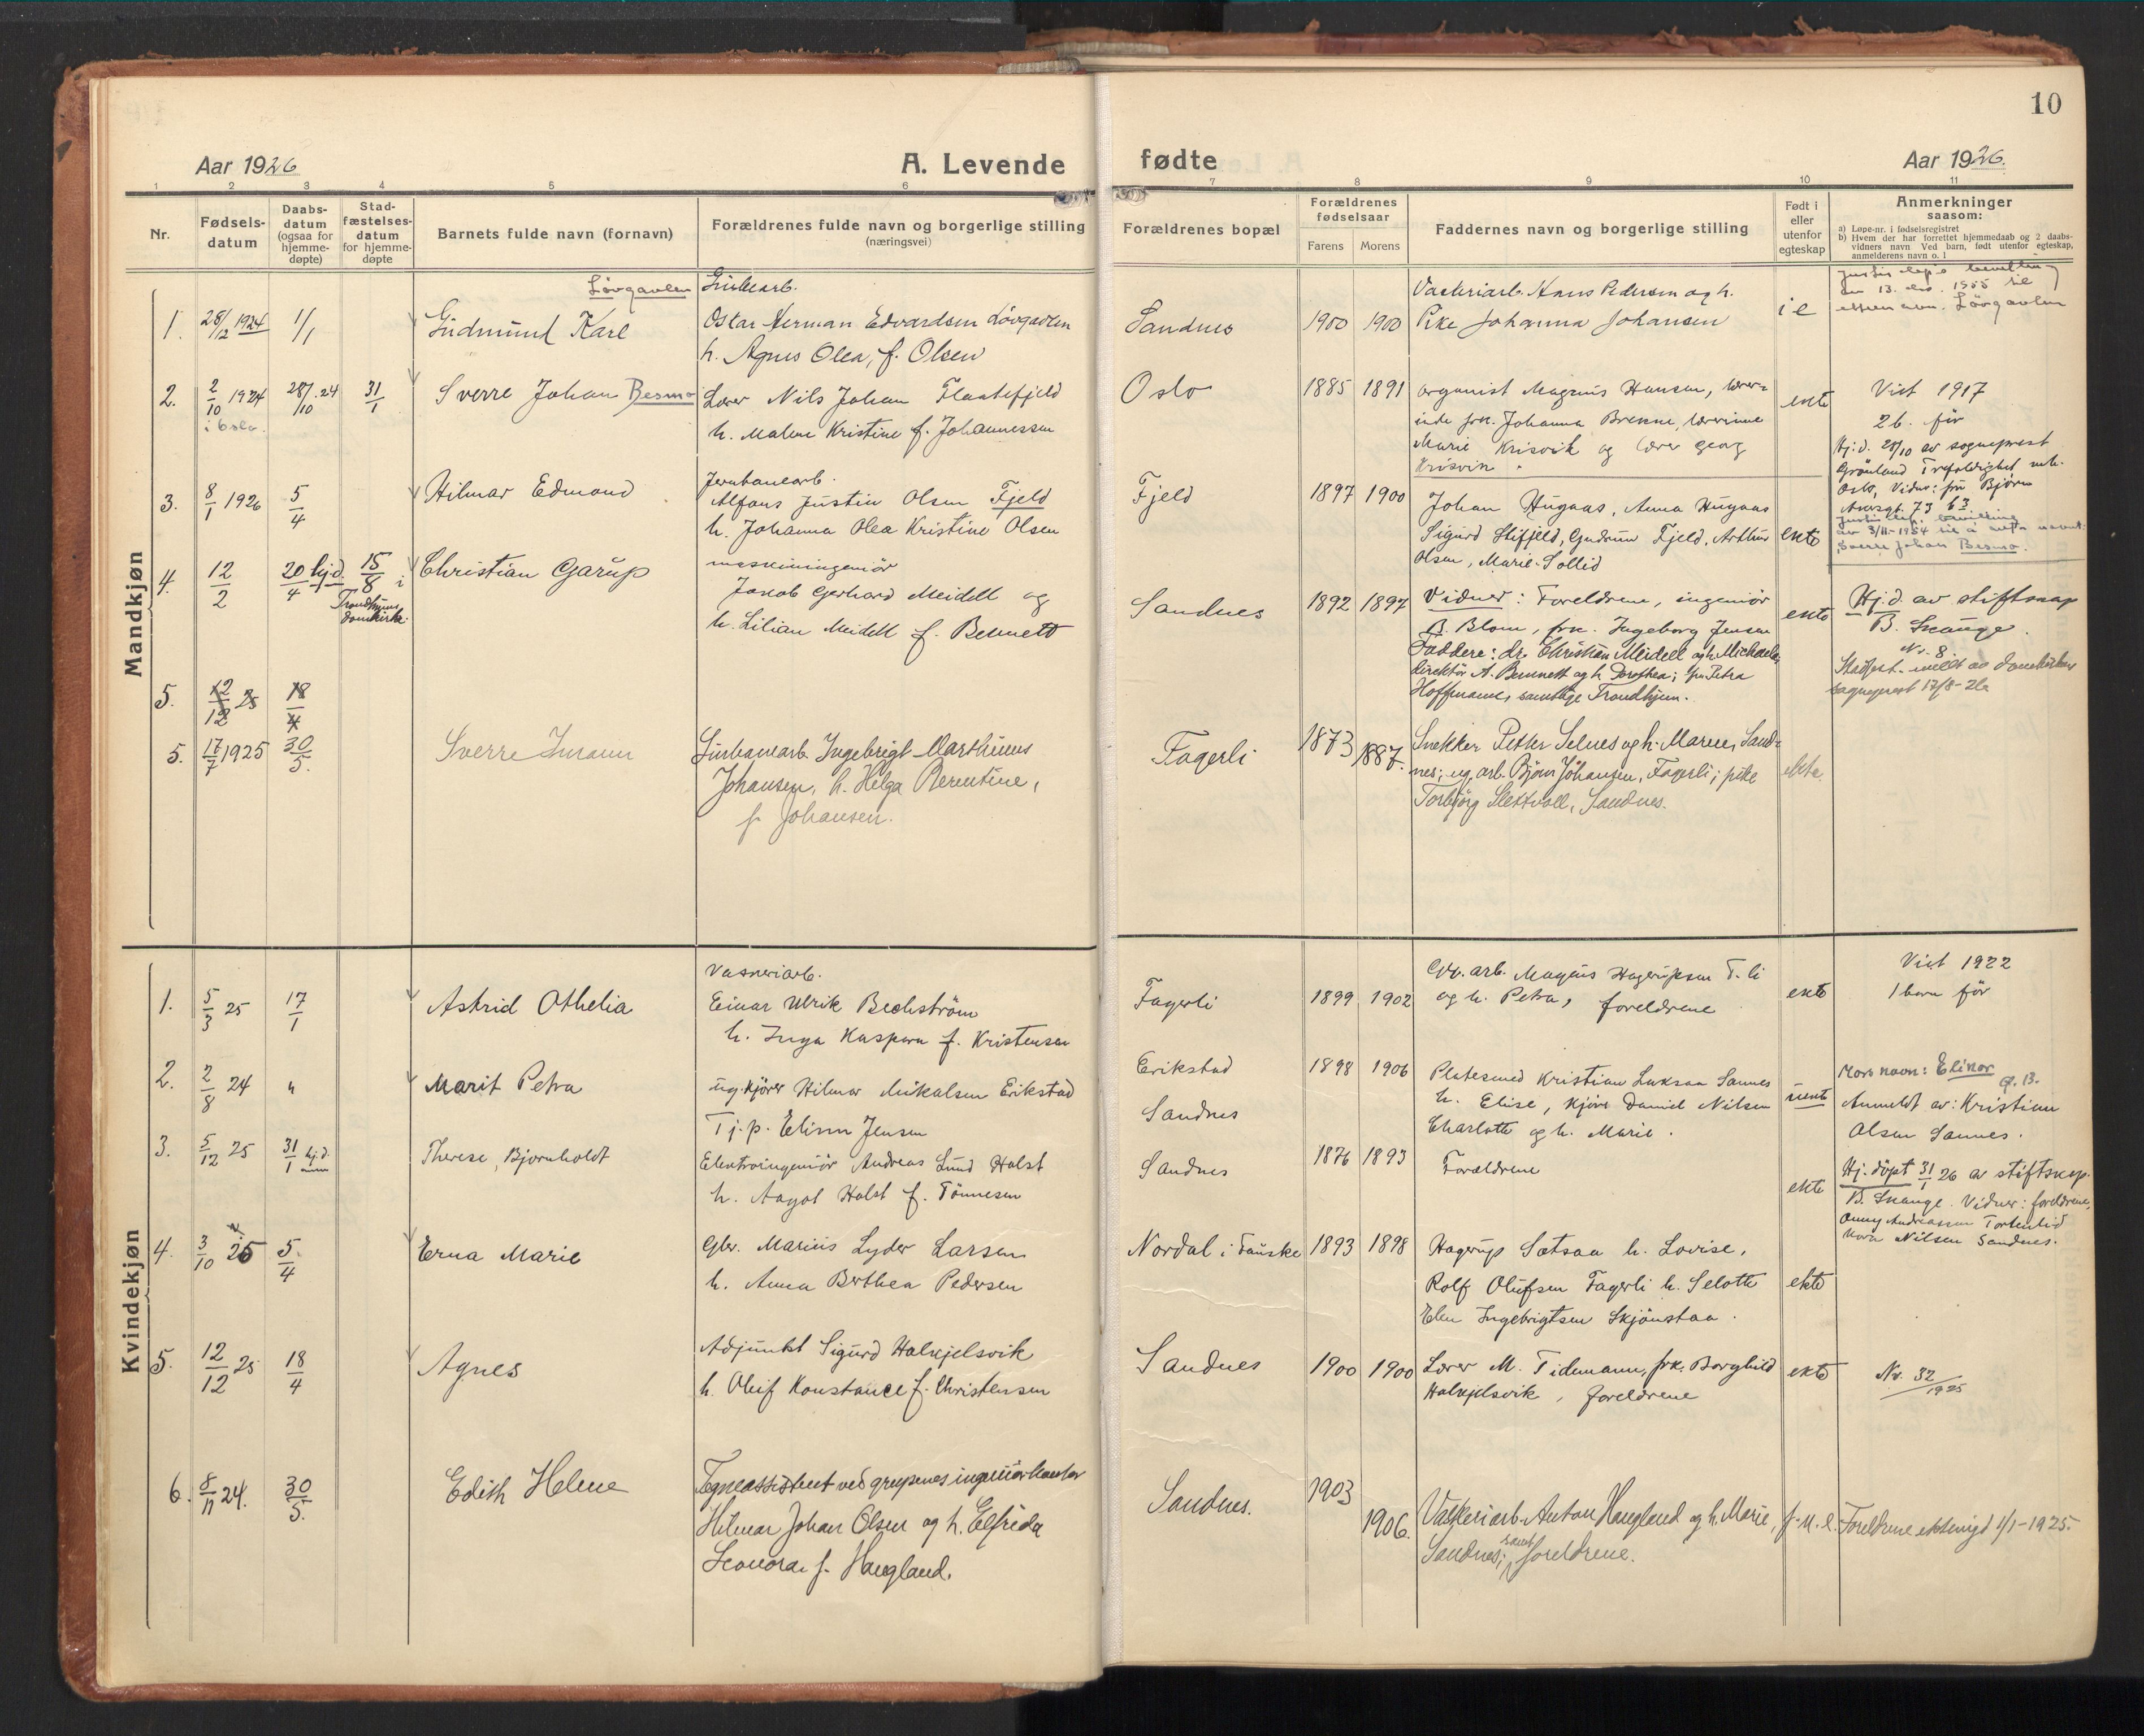 10
Aar 1926
A. Levende
fødte
Aar 1926.
1 2 3 4 5 6 7 8 9 10 11
Nr.
Fødsels-
datum
Daabs-
datum
(ogsaa for
hjemme-
døpte)
Stad-
fæstelses-
datum
for hjemme-
døpte
Barnets fulde navn (fornavn)
Forældrenes fulde navn og borgerlige stilling
(næringsvei)
Forældrenes bopæl
Forældrenes
fødselsaar
Farens Morens
Faddernes navn og borgerlige stilling
Født i
eller
utenfor
egteskap
Anmerkninger
saasom:
a) Løpe-nr. i fødselsregistret
b) Hvem der har forrettet hjemmedaab og 2 daabs-
vidners navn Ved barn, født utenfor egteskap,
anmelderens navn o. l
Mandkjøn
1. 28/12 1924 1/1
Løvgavlen
Gudmund Karl
Oskar Herman Edvardsen Løvgavlen
h. Agnes Olea, f. Olsen
Sandnes 1900 1900
Vaskeriarb. Hans Pedersen og h.
Pike Johanna Johansen
i e
av 13. des. 1955 til
navn. Løvgavlen
2. 2/10 1924 28/10.24 31/1
i Oslo.
Sverre Johan Besmo
Lærer Nils Johan Flaatefjeld
h. Malene Kristine f. Johannessen
Oslo 1885 1891
organist Magnus Hansen, lærer-
inde frk. Johanna Brenne, lærerinne
Marie Krisvik og lærer Georg
Krisvik.
ekte
Viet 1917
2 b. før
Hj.d. 28/10 av sogneprest
Grönland Trefoldighet mh.
Oslo, Vidner: fru Bjørn
Akersgt. 73 b3.
Justisdep. bevilling
av 3/11-1954 til å anta navnet:
Sverre Johan Besmo.
3. 8/1 1926 5/4
Hilmar Edmond
Jernbanearb.
Alfons Justin Olsen Fjeld
h. Johanna Olea Kristine Olsen
Fjeld 1897 1900
Johan Hugaas, Anna Hugaas
Sigurd Stifjeld, Gudrun Fjeld, Arthur
Olsen, Marie Sollid
ekte
4. 12/2 20/4 hj.d. 15/8 i
Trondhjems
domkirke.
Christian Garup
maskiningeniör
Jakob Gerhard Meidell og
h. Lilian Meidell f. Bennett
Sandnes 1892 1897
Vidner: Foreldrene, ingeniör
B. Blom, frk. Ingeborg Jensen
Faddere: dr. Christian Meidell og h. Michaela,
direktör A. Bennett og h. Dorothea; fru Petra
Hoffmann, samtlige Trondhjem.
ekte
Hj.d. av stiftskap
B. Skauge.
Nr. 8
Stadfest. meldt av domkirkens
sogneprest 17/8-26
5. 12/12 25 18/4
5. 17/7 1925 30/5.
Sverre Imann
Linbanearb. Ingebrigt Marthinus
Johansen, h. Helga Berentine,
f. Johansen.
Fagerli 1873 1887.
Snekker Petter Selnes og h. Maren, Sand-
nes; ug. arb. Bjørn Johansen, Fagerli; pike
Torbjørg Slettvoll, Sandnes.
ekte.
Kvindekjøn
1. 5/3 25 17/1
Astrid Othelia
Vaskeriarb.
Einar Ulrik Bechström
h. Inga Kaspara f. Kristensen
Fagerli 1899 1902
Gr. arb. Magnus Hagerupsen F. li
og h. Petra, foreldrene
ekte
Viet 1922
1 barn før
2. 2/8 24 "
Marit Petra
ug. kjører Hilmar Mikalsen Erikstad
Tj.p. Elinor Jensen
Erikstad
Sandnes
1898 1906
Platesmed Kristian Sannes
h. Elise, kjører Daniel Nilsen
Charlotte og h. Marie.
uekte
Mors navn: Elinor
Anmeldt av: Kristian
Olsen Sannes.
3. 5/12 25 31/1 hj.d.
Therese, Bjornholdt
Elektroingeniör Andreas Lund Holst
h. Aagot Holst f. Tönnesen
Sandnes 1876 1893
Forældrene
ekte
Hj. döpt 31/1 26 av stiftskap.
B. Skauge. Vidner: foreldrene,
Anny Andreassen Tortenlid
Nora Nilsen Sandnes.
4. 3/10 25 5/4
Erna Marie
Gbr. Marius Lyder Larsen
h. Anna Berthea Pedersen
Nordal i Fauske 1893 1898
Hagerup Sætsaa h. Lovise,
Rolf Olufsen Fagerli h. Selotte
Elen Ingebrigtsen Skjönstaa.
ekte
5. 12/12 25 18/4
Agnes
Adjunkt Sigurd Halkjelsvik
h. Oluf Konstance f. Christensen
Sandnes 1900 1900
Lærer M. Tidemann, frk. Borghild
Halkjelsvik, foreldrene
ekte
Nr. 32/1925
6. 8/11 24. 30/5.
Edith Helene
Tegneassistent ved grupenes ingeniörkontor
Hilmar Johan Olsen og h. Elfrida
Leonora f. Haugland.
Sandnes. 1903 1906.
Vaskeriarb. Anton Haugland og h. Marie,
Sandnes; samt foreldrene.
f. u. e.
Foreldrene ektevigd 1/1-1925.